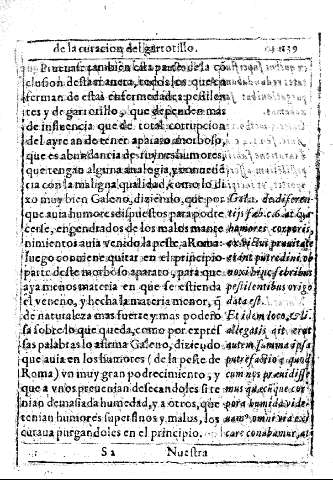 de la curacion del garrotillo. 139
Prueuase tambien esta parte de la cõ
clusion desta manera, todos los que en
ferman de estas enfermedades pestilen
tes y de garrotillo, que dependen mas
de influencia que de total corrupcion
del ayre an de tener aparato morboso,
que es abundancia de ruynes humores,
que tengan alguna analogia, y conuenie
cia con la maligna qualidad, como lo di
xo muy bien Galeno, diziendo, que por
que auia humores dispuestos para podre
cerse, engendrados de los malos mante
nimientos auia venido la peste a Roma:
luego conuiene quitar en el principio
parte deste morboso aparato, para que
aya menos materia en que se estienda
el veneno, y hecha la materia menor, q̃
da naturaleza mas fuerte y mas podero
sa sobre lo que queda, como por expres
sas palabras lo afirma Galeno, diziendo
que auia en los humores (de la peste de
Roma) vn muy gran podrecimiento, y
que a vnos preuenian desecandoles si te
nian demasiada humedad, y a otros, que
tenian humores superfluos y malos, los
curaua purgandoles en el principio.
Gal. 1. de differen
tijs feb. c. 6. at qua
humores corporis,
ex victus prauitate
erant putredini ob
noxij huic febribus
pestilentibus origo
data est.
Et idem loco, &
allegatis ait erat
autem summa ipsa
putrefactio quod
cum nos præmidisse
mus quæcũque cor
pora humida vide
care conabamur, at
S 2 Nuestra